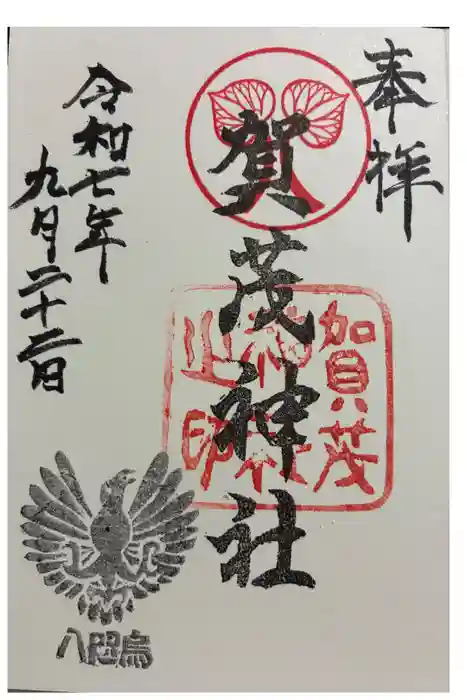 奉拝
賀茂神社
加賀茂
神社
之印
令和七年
九月二十二日
八咫烏